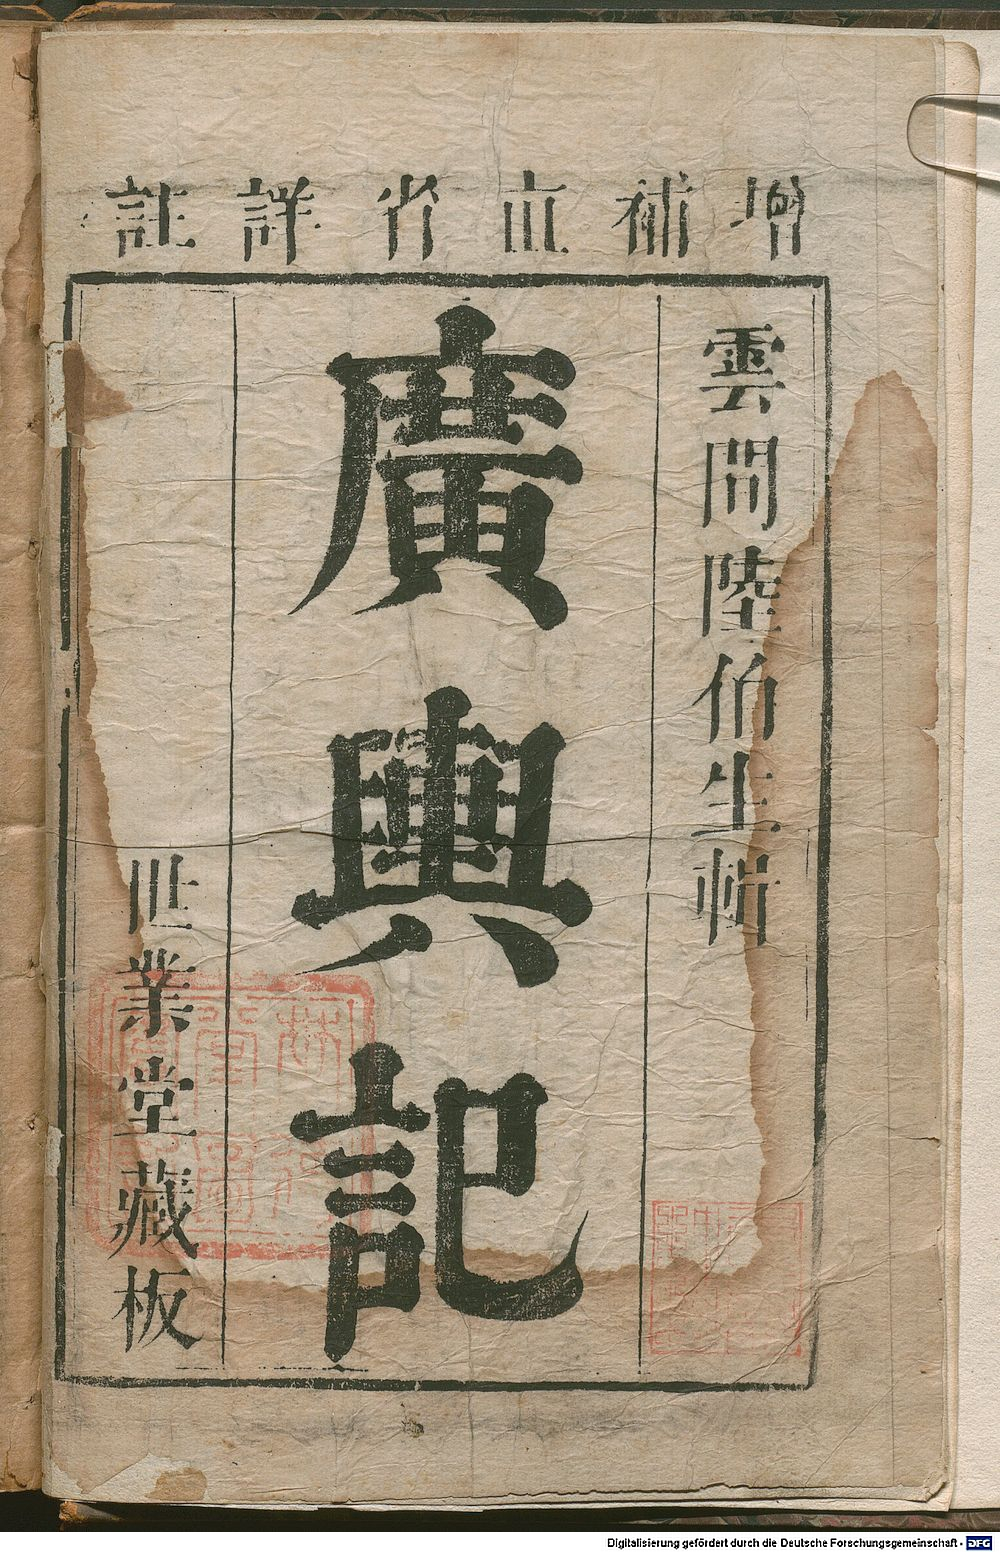 增補直省詳註
雲間陸伯生輯
廣輿記
世業堂藏板
Digitalisierung gefördert durch die Deutsche Forschungsgemeinschaft - DFG